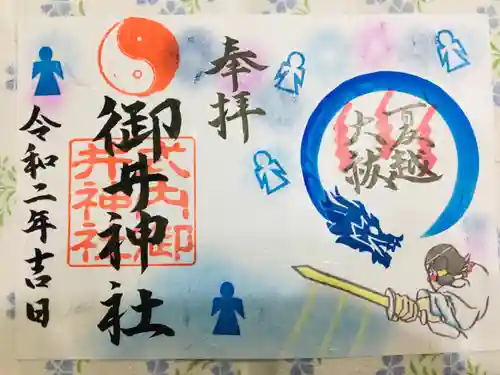 夏越
大祓
奉拝
犬山御
井神社
御井神社
令和二年吉日